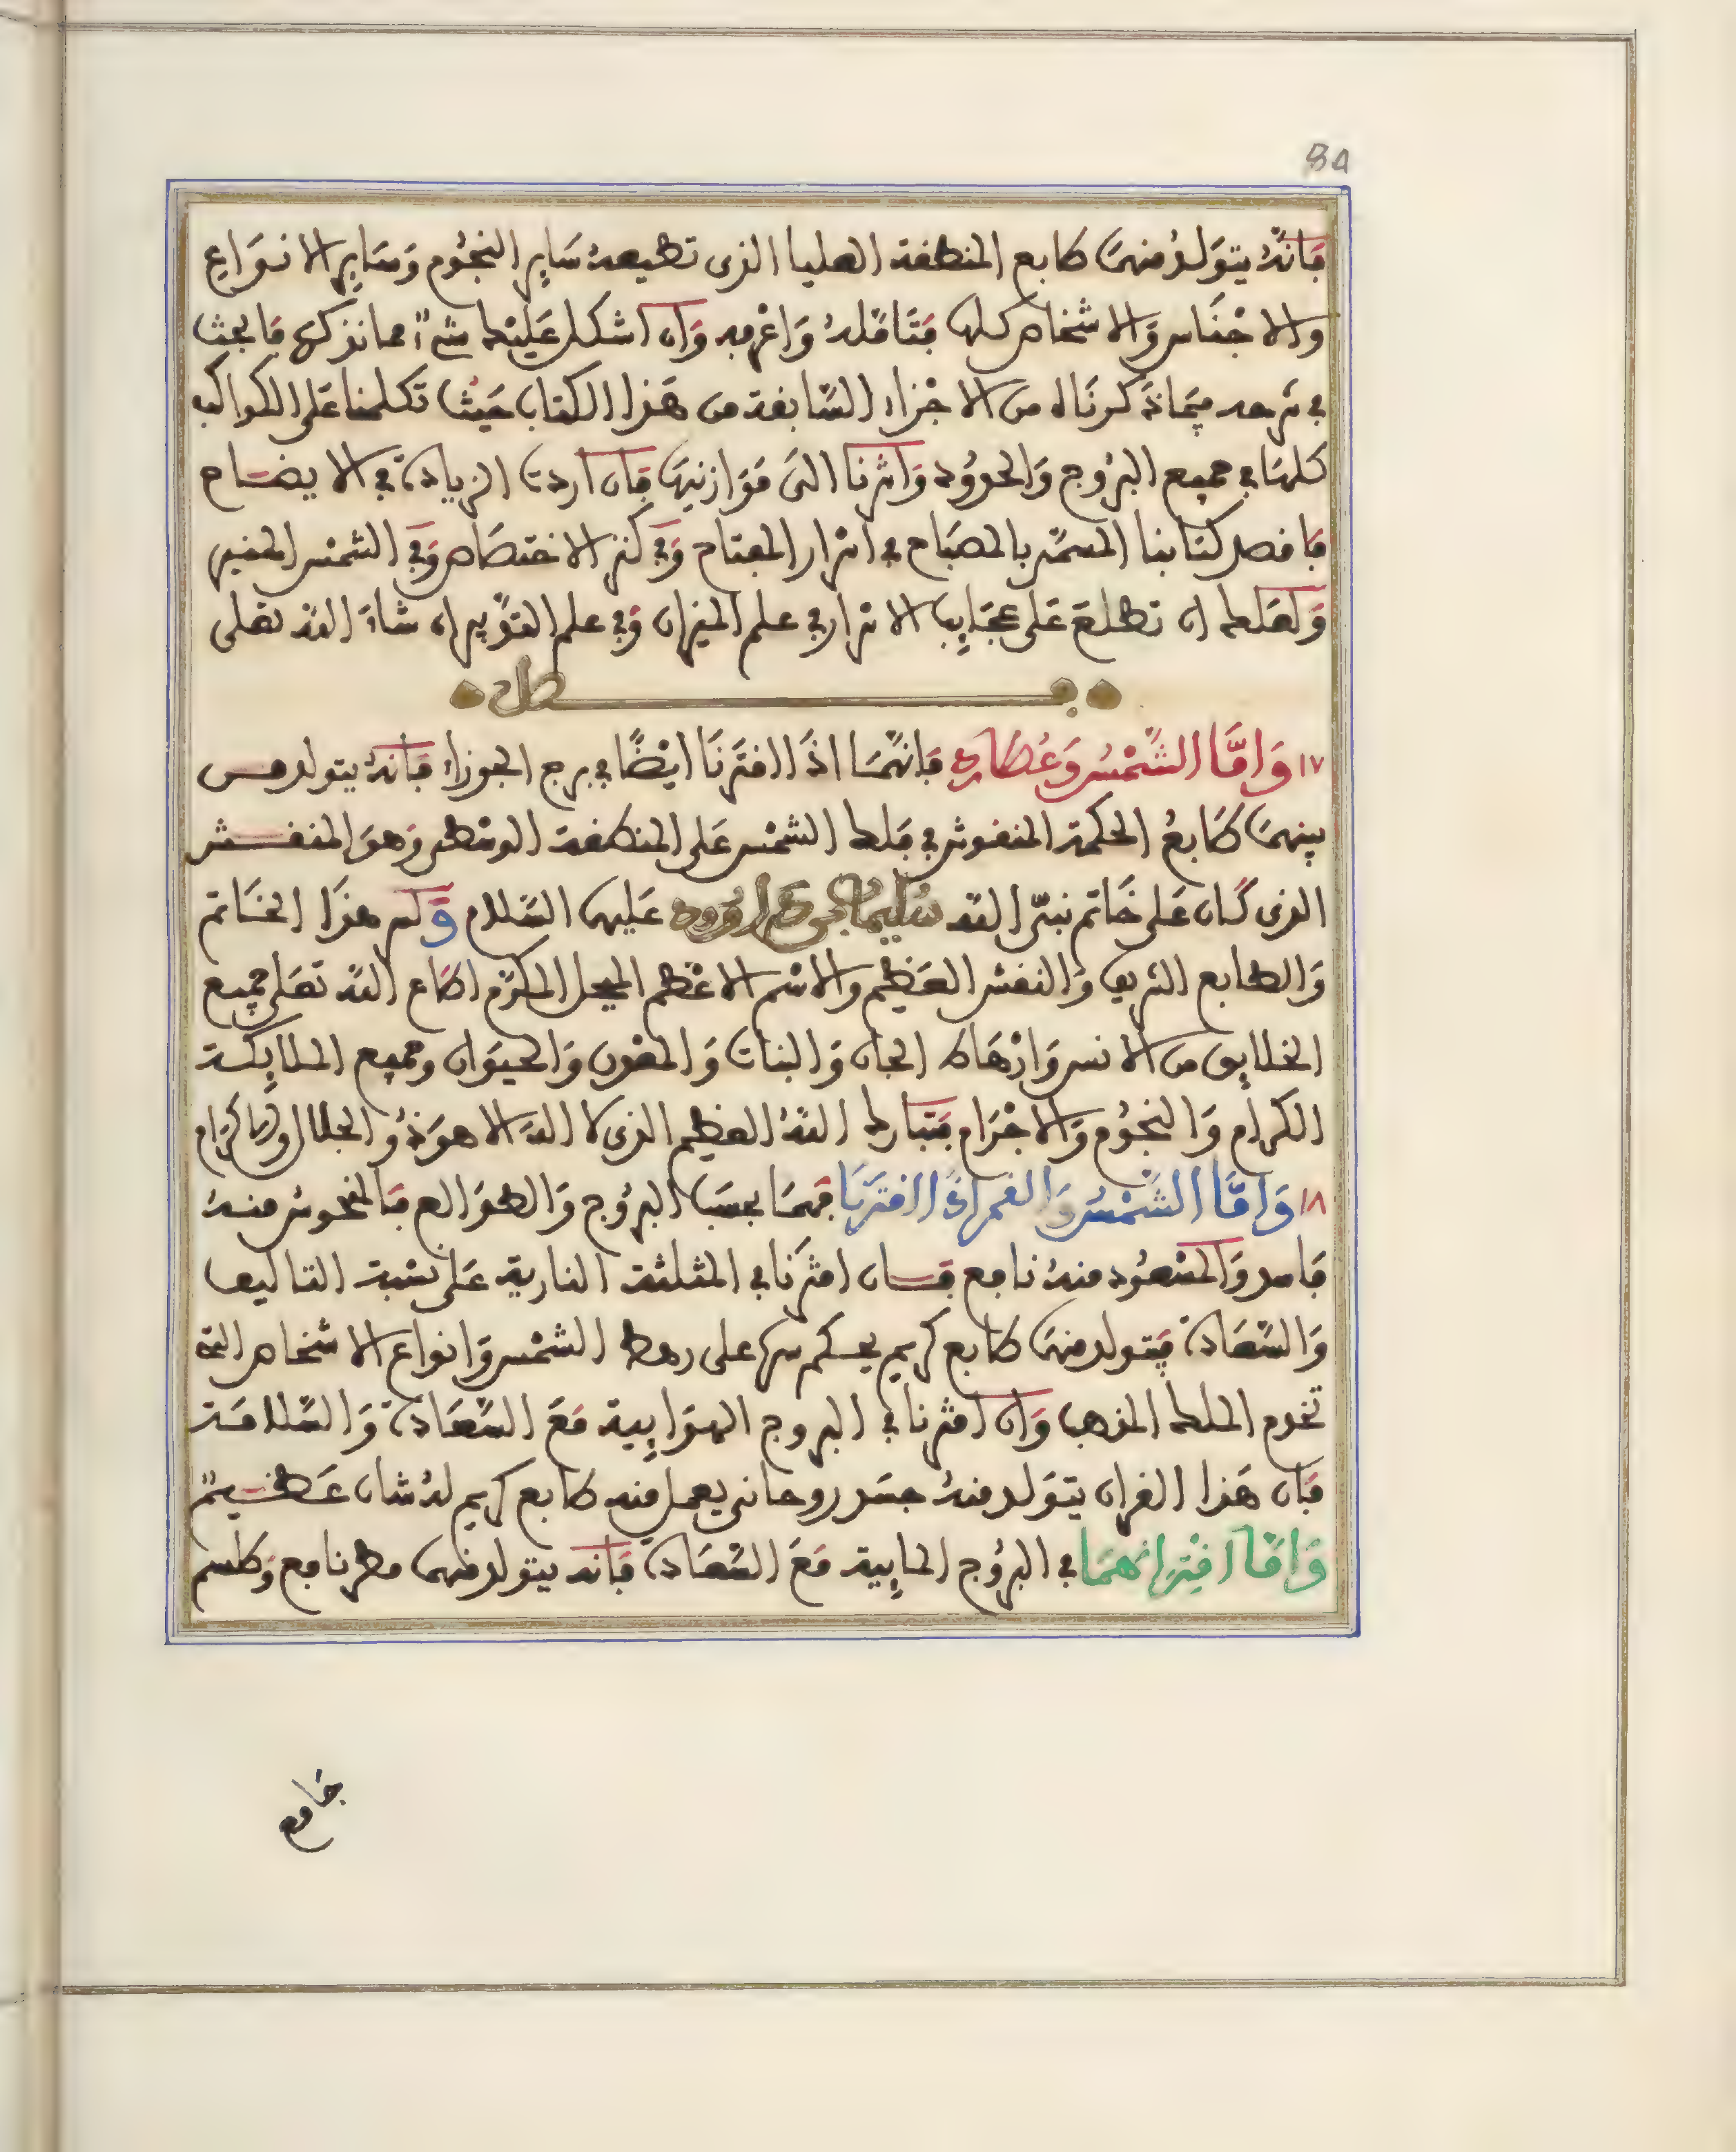 84
فانه يتولد منهما طابع المنطقة العليا الذى تطيعه ساير النجوم وساير الانواع
والاجناس والاشخاص كلها فتامله واعرفه وان اشكل عليك شىء مما نذكره فابحث
فى شرحه فيما ذكرناه من الاجزاء السابقة من هذا الكتاب حيث تكلمنا على الكواكب
كلها فى جميع البروج والحدود واشرنا الى موازنيها فان اردت الزيادة فى الايضاح
فاقصد كتابنا المسمى بالمصباح فى اسرار المفتاح وفى كنز الاختصاص وفى الشمس المنير
ولعلك ان تطلع على عجايب الاسرار فى علم الميزان وفى علم التقويم ان شاء الله تعلى
فصل
١٧ واما الشمس وعطارد فانهما اذا اقترنا ايضا فى برج الجوزاء فانه يتولد من
بينهما طابع الحكمة المنقوش فى فلك الشمس على المنطقة الوسطى وهو المنقش
الذى كان على خاتم نبى الله سليمان بن داوود عليهما السلام ولهذا الخاتم
والطابع الشريف والنقش العظيم والاسم الاعظم المبجل المكرم اطاع الله تعلى جميع
الخلايق من الانس وارهاط الجان والنبات والمعدن والحيوان وجميع الملايكة
الكرام والنجوم والاجرام فتبارك الله العظيم الذى لا اله الا هو ذو الجلال والاكرام
١٨ واما الشمس والقمر اذا اقترنا فهما بحسب البروج والطوالع فالمنحوس منه
فاسد والمسعود منه نافع فان اقترنا فى المثلثة النارية على نسبة التاليف
والسعادة فيتولد منهما طابع كريم يحكم سره على رهط الشمس وانواع الاشخاص التى
تخدم الملك المذهب وان اقترنا فى البروج الهوايية مع السعادة والسلامة
فان هذا القران يتولد منه جسد روحانى يعمل منه طابع كريم له شان عظيم
واما اقترانهما فى البروج المايية مع السعادة فانه يتولد منهما مطر نافع وطلسم
جامع